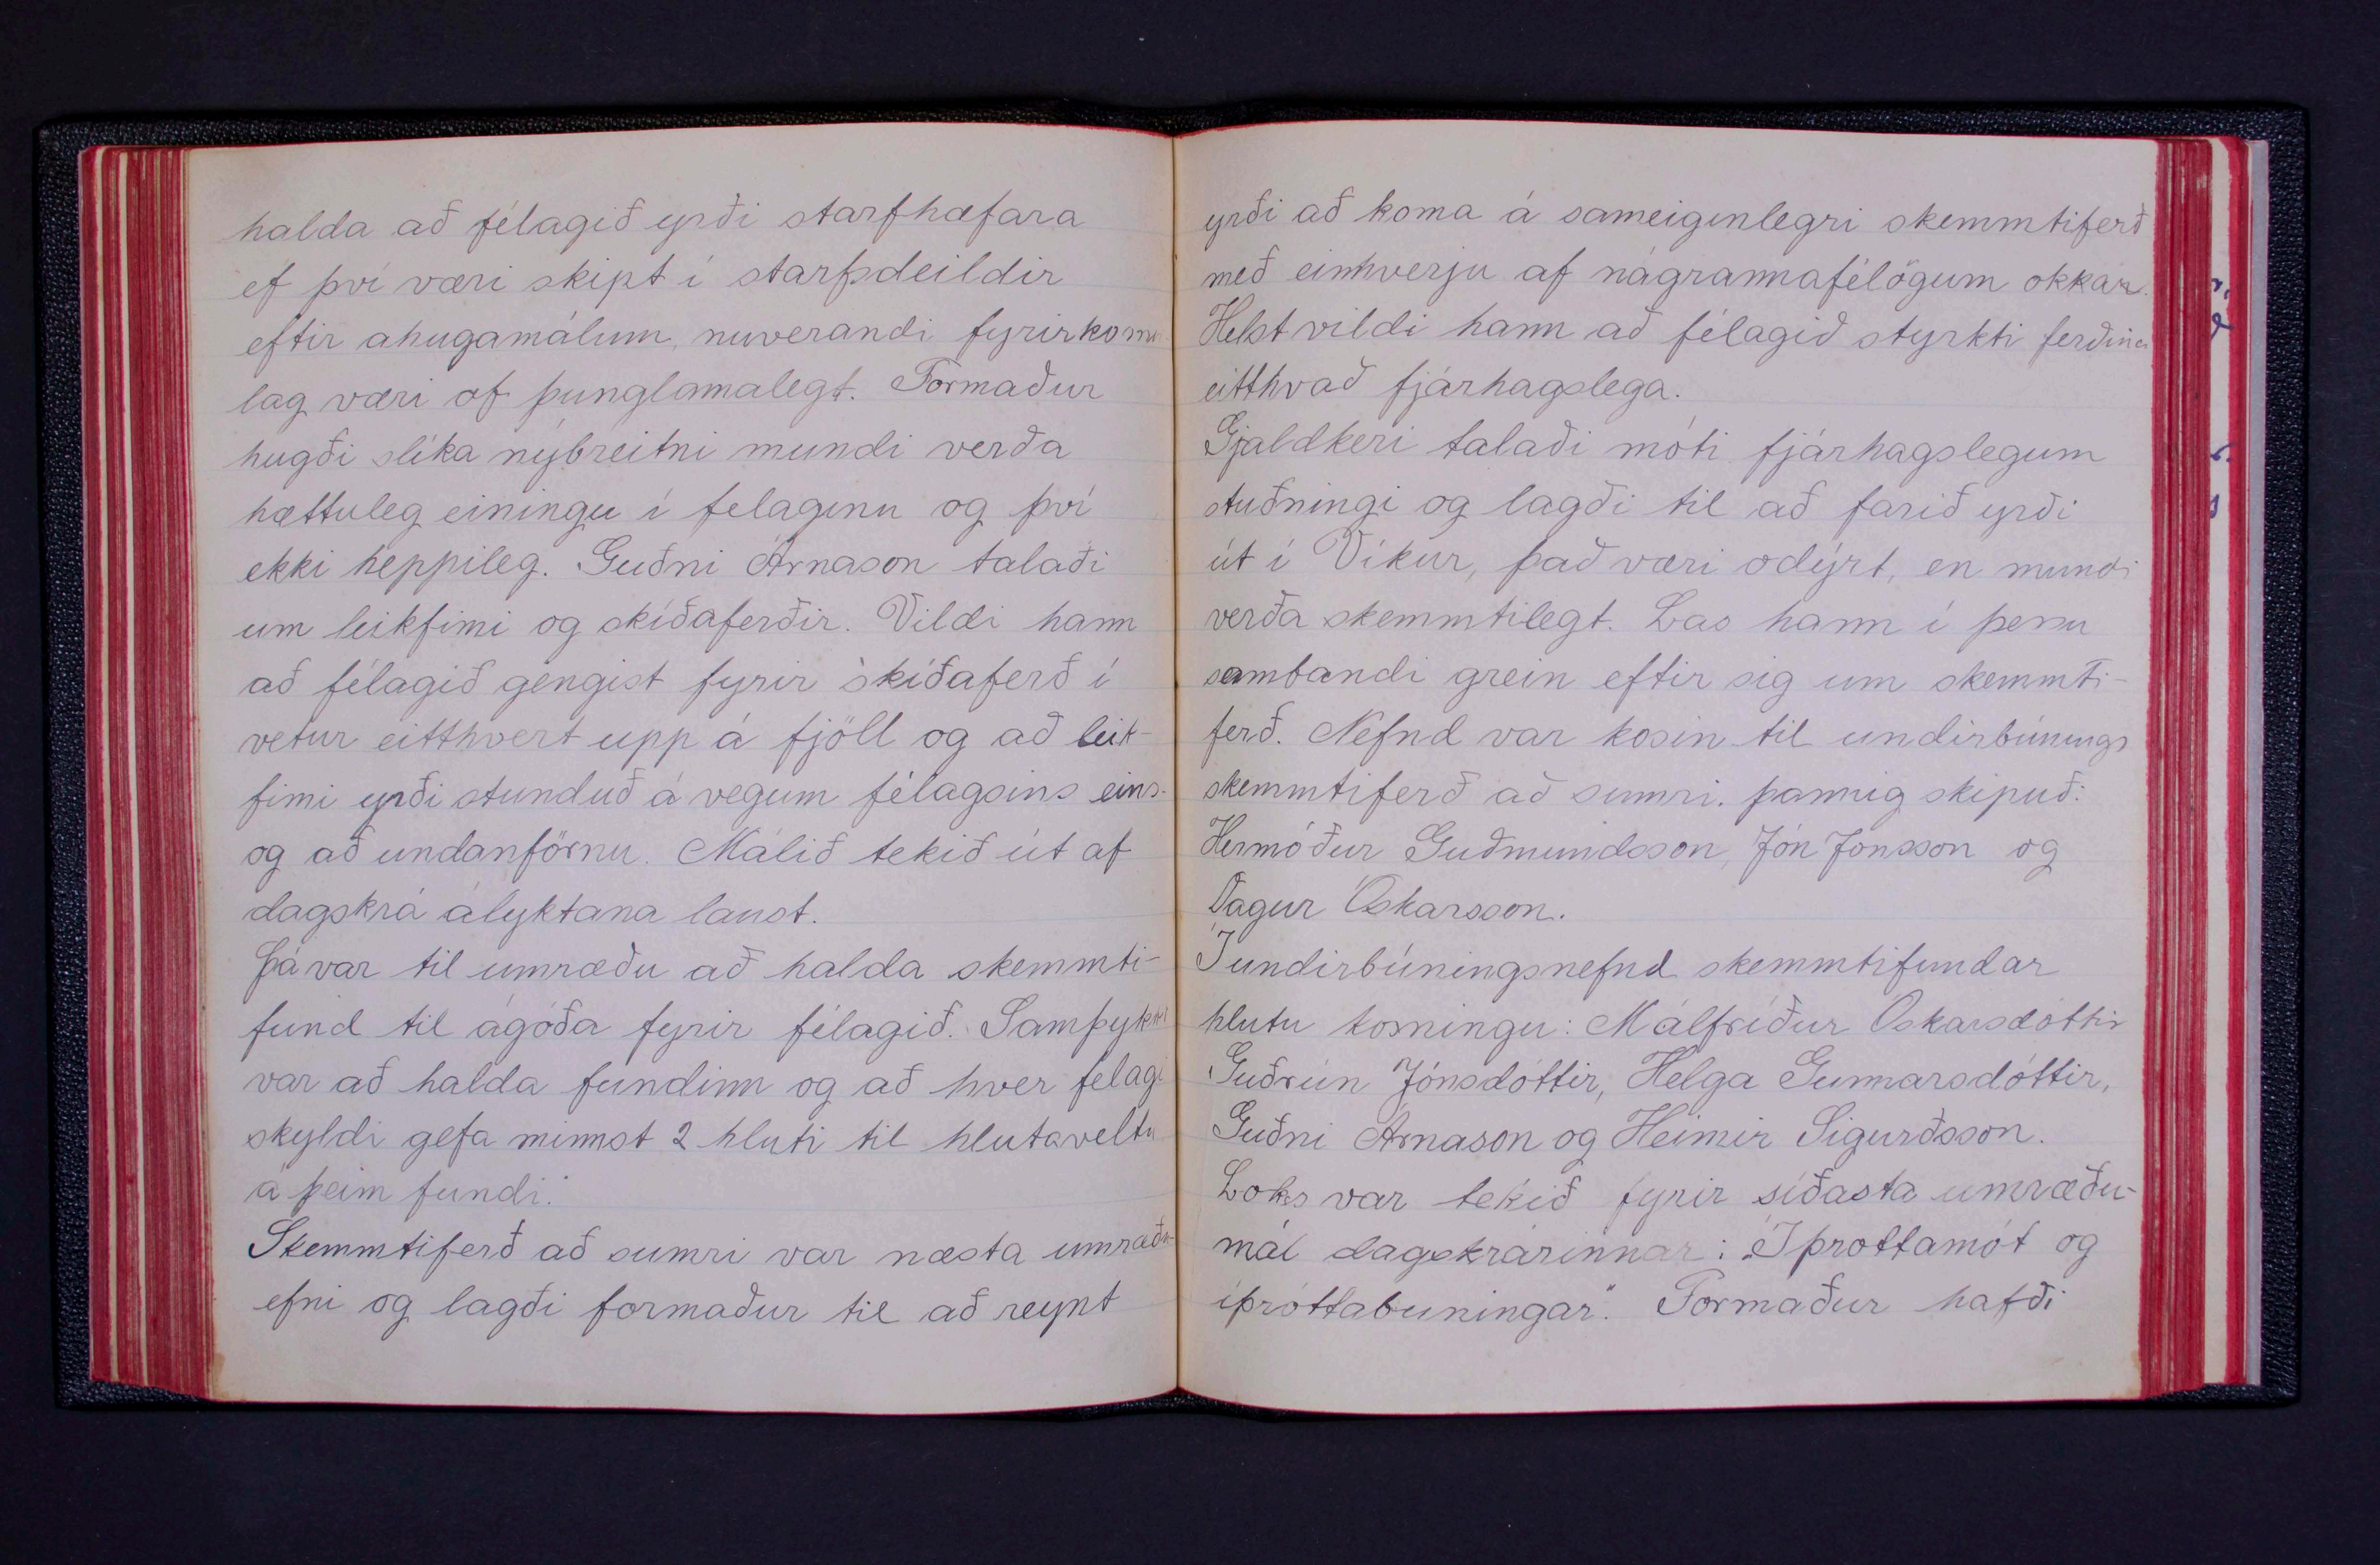 halda að félagið yrði starfhæfara
ef því væri skipt í starfsdeildir
eftir ahugamálum, nuverandi fyrirkomu-
lag væri of þunglamalegt. Formaður
hugði slíka nýbreitni mundi verða
hættuleg einingu í felaginu og því
ekki heppileg. Guðni Árnason talaði
um leikfimi og skíðaferðir. Vildi hann
að félagið gengist fyrir skíðaferð í
vetur eitthvert upp á fjöll og að leik-
fimi yrði stunduð á vegum félagsins eins-
og að undanförnu. Málið tekið út af
dagskrá ályktana laust.
Þá var til umræðu að halda skemmti-
fund til ágóða fyrir félagið. Samþykkt
var að halda fundinn og að hver felagi
skyldi gefa minnst 2 hluti til hlutaveltu
á þeim fundi.
Skemmtiferð að sumri var næsta umræðu-
efni og lagði formaður til að reynt
yrði að koma á sameiginlegri skemmtiferð
með einhverju af nágrannafélögum okkar.
Helst vildi hann að félagið styrkti ferðina
eitthvað fjárhagslega.
Gjaldkeri talaði móti fjárhagslegum
stuðningi og lagði til að farið yrði
út í Víkur, það væri odýrt, en mundi
verða skemmtilegt. Las hann í þessu
sambandi grein eftir sig um skemmti-
ferð. Nefnd var kosin til undirbúnings
skemmtiferð að sumri. þannig skipuð:
Hermóður Guðmundsson, Jón Jónsson og
Dagur Óskarsson.
Í undirbúningsnefnd skemmtifundar
hlutu kosningu: Málfríður Óskarsdóttir
Guðrún Jónsdóttir, Helga Gunnarsdóttir,
Guðni Árnason og Heimir Sigurðsson.
Loks var tekið fyrir síðasta umræðu-
mál dagskrárinnar: „Íþrottamót og
íþróttabuningar“. Formaður hafði